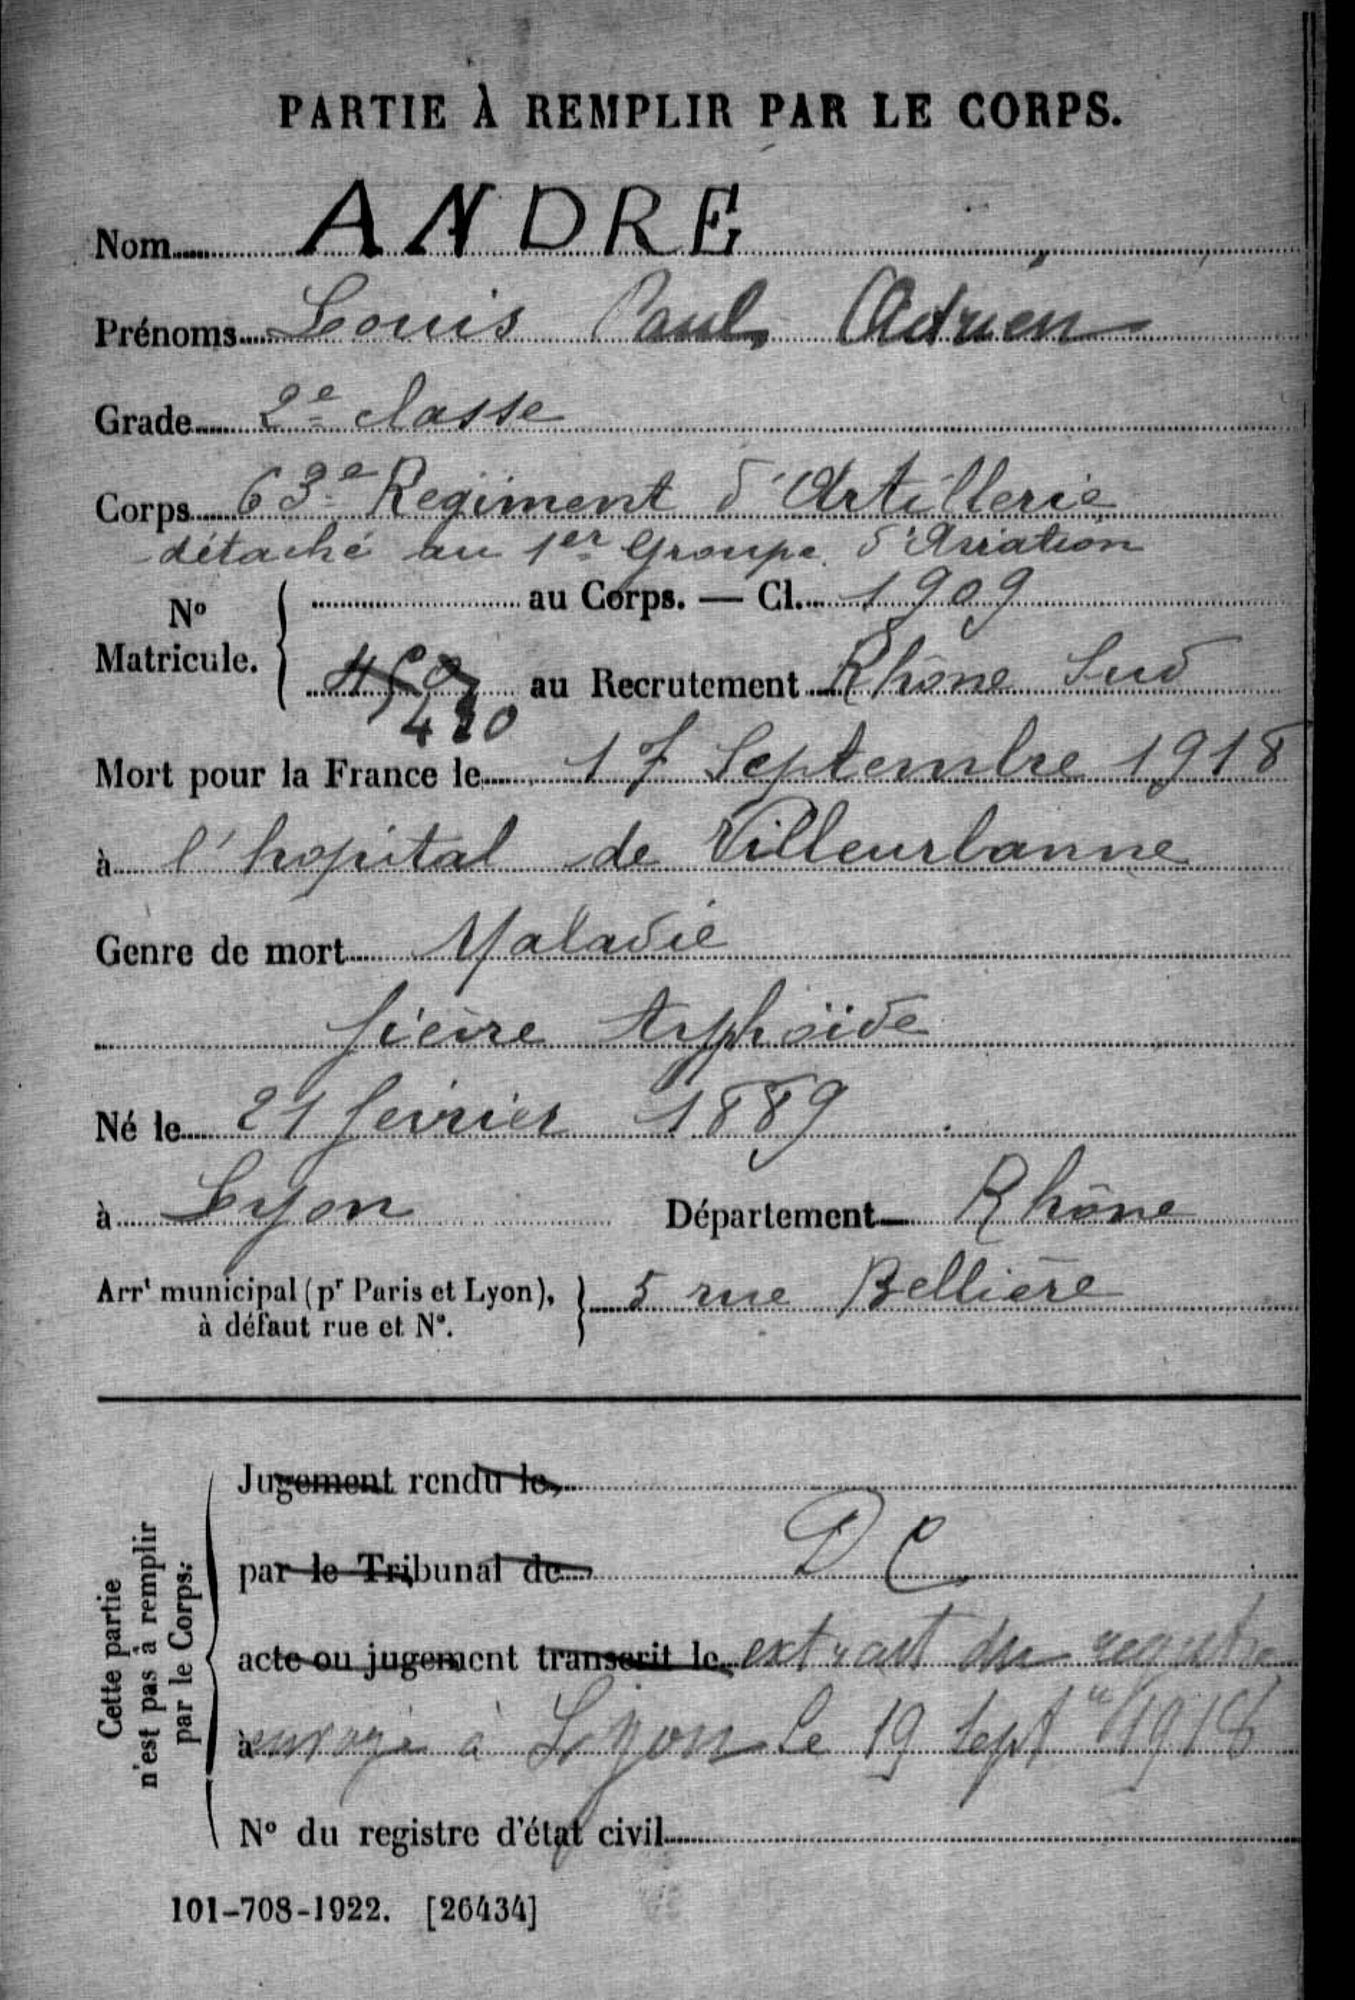 PARTIE À REMPLIR PAR LE CORPS.
Nom ANDRE
Prénoms Louis Paul Adrien
Grade 2e classe
Corps 63e Regiment d'Artillerie
détaché au 1er Groupe d'Aviation
No Matricule. { au Corps. — Cl. 1909
459 au Recrutement Rhône Sud
Mort pour la France le 17 Septembre 1918
à l'hopital de Villeurbanne
Genre de mort Maladie
fièvre typhoïde
Né le 21 février 1889
à Lyon Département Rhône
Arrt municipal (pr Paris et Lyon), à défaut rue et N°. } 5 rue Bellière
Cette partie n'est pas à remplir par le Corps.
Jugement rendu le
par le Tribunal de D C
acte ou jugement transcrit le extrait du registre
à envoyé à Lyon le 19 Septre 1918
N° du registre d'état civil
101-708-1922. [26434]